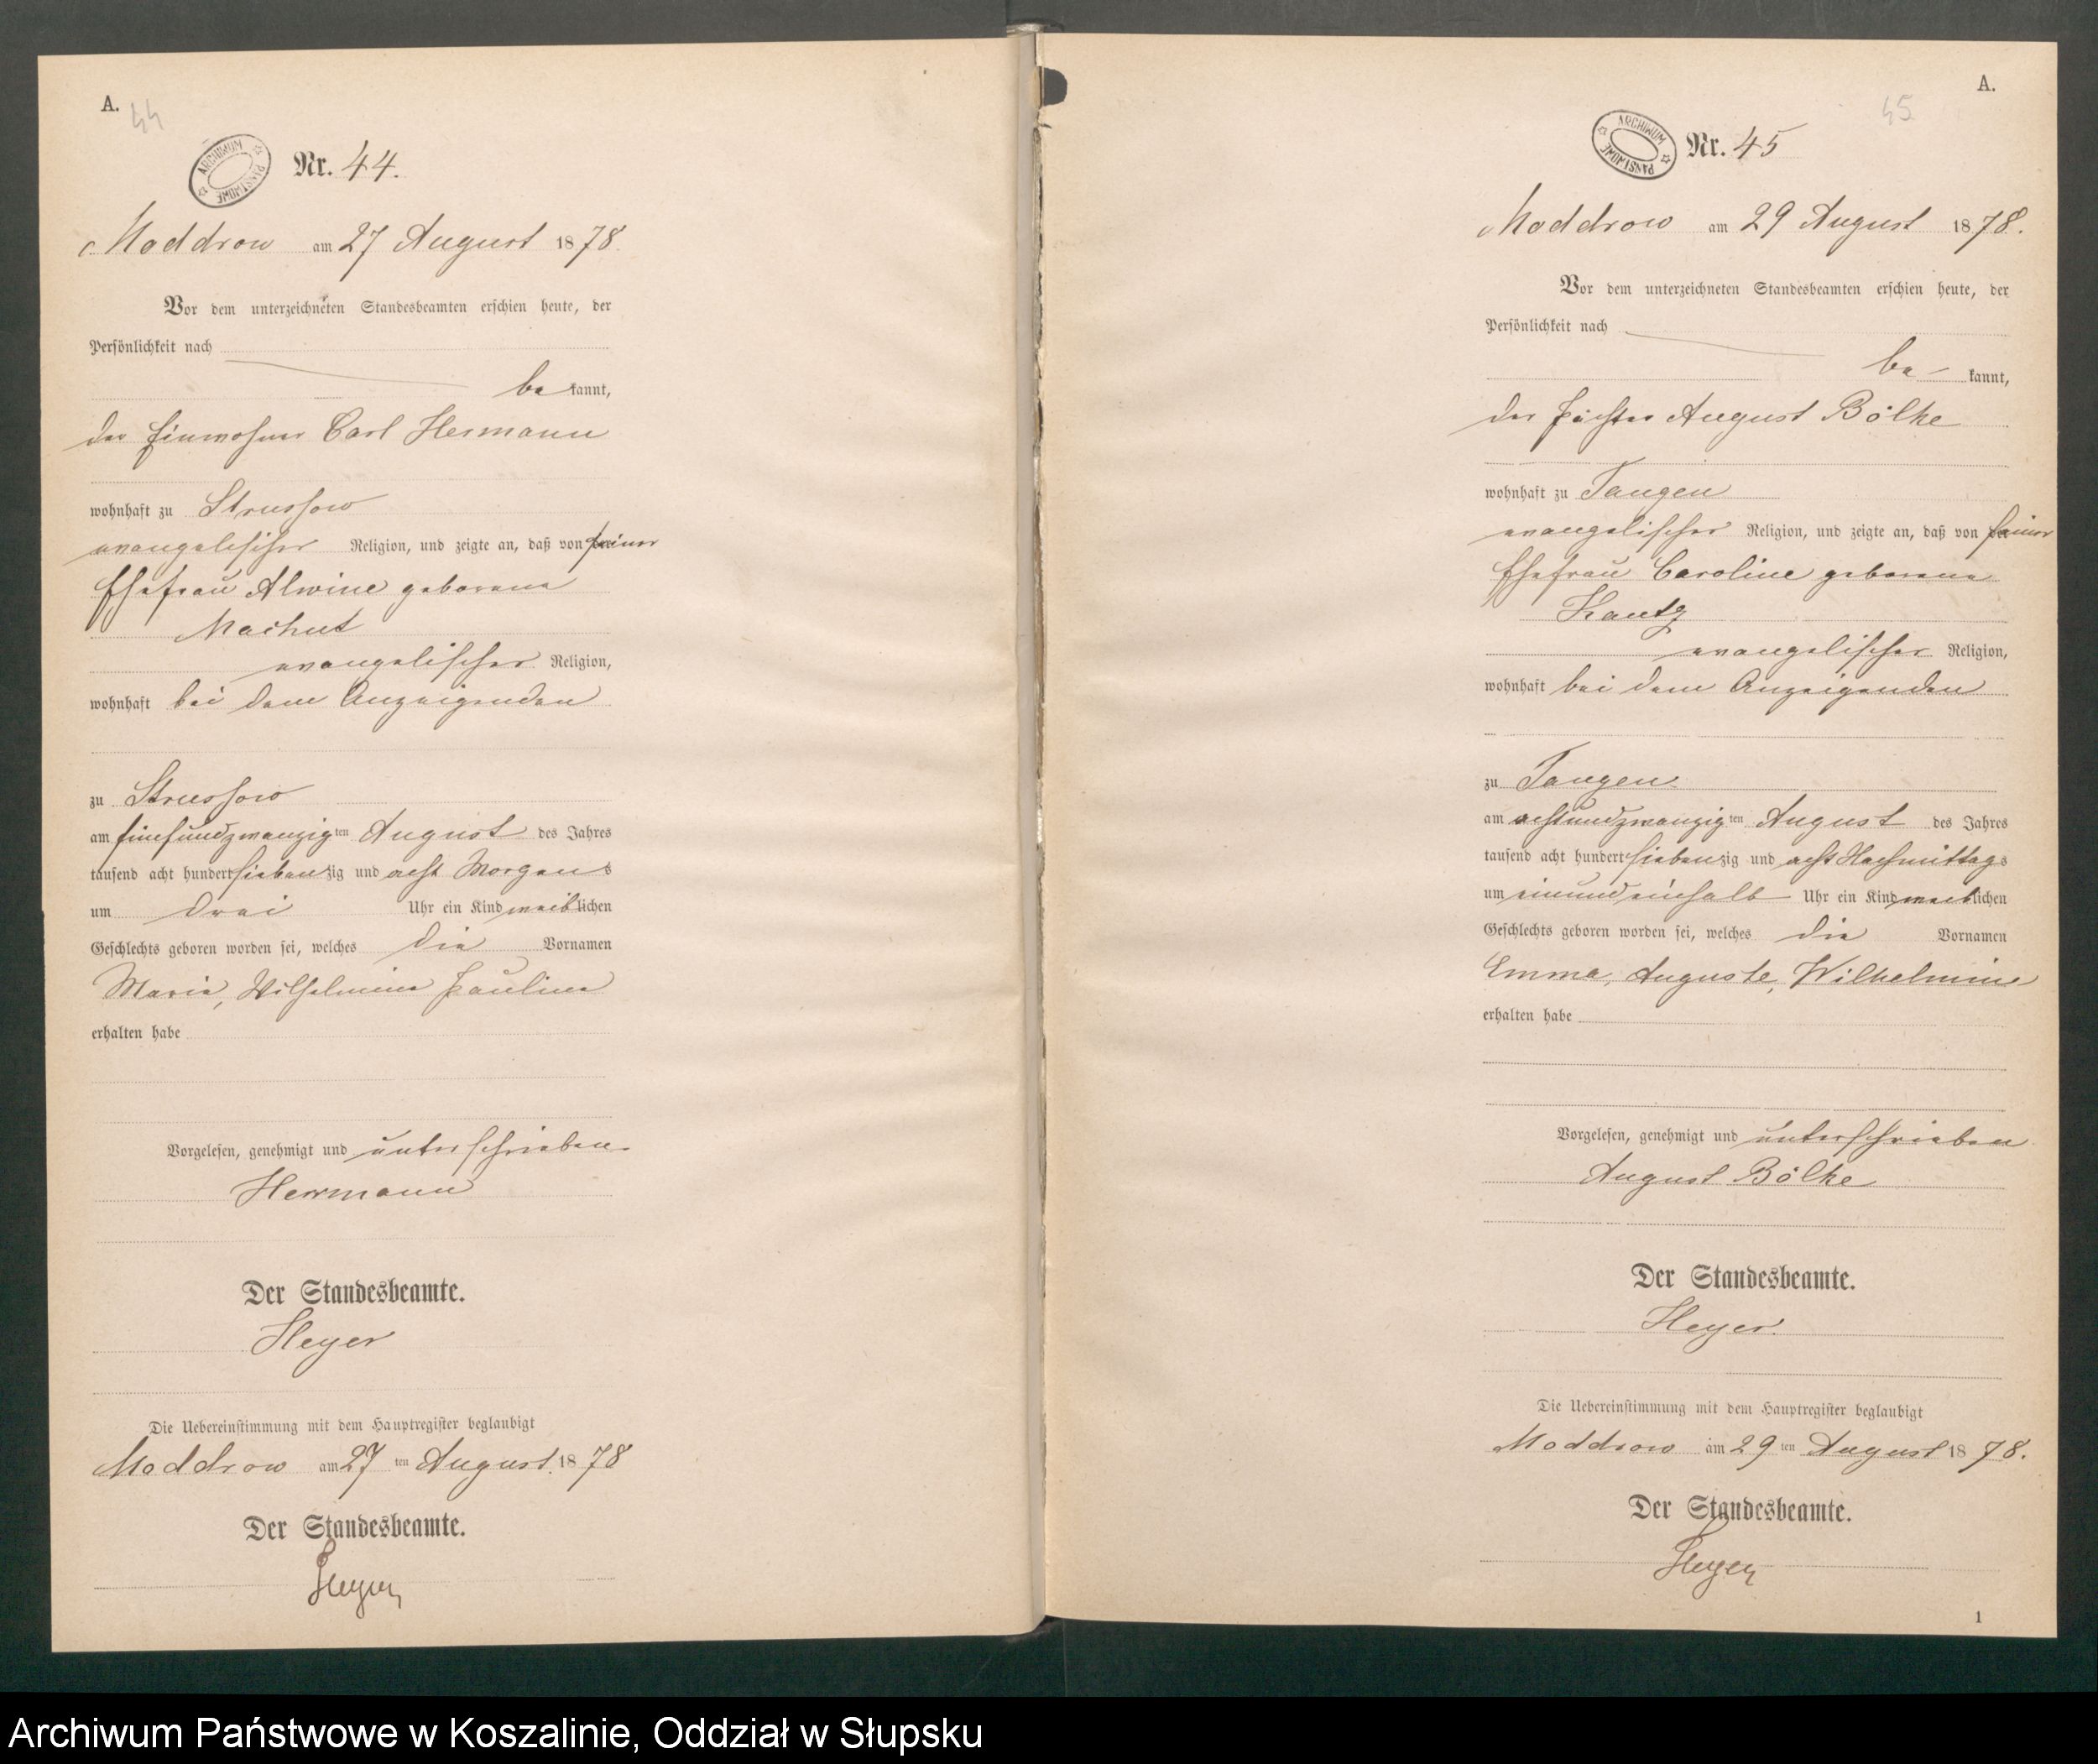 A.
44
ARCHIWUM PAŃSTWOWE
Nr. 44.
Moddrow am 27 August 1878.
Vor dem unterzeichneten Standesbeamten erschien heute, der
Persönlichkeit nach
be kannt,
der Einwohner Carl Hermann
wohnhaft zu Strussow
evangelischer Religion, und zeigte an, daß von seiner
Ehefrau Alwine geborene
Machut
evangelischer Religion,
wohnhaft bei dem Anzeigenden
zu Strussow
am fünfundzwanzig ten August des Jahres
tausend acht hundert siebenzig und acht Morgens
um drei Uhr ein Kind weiblichen
Geschlechts geboren worden sei, welches die Vornamen
Marie, Wilhelmine Pauline
erhalten habe
Vorgelesen, genehmigt und unterschrieben
Herrmann
Der Standesbeamte.
Heyer
Die Uebereinstimmung mit dem Hauptregister beglaubigt
Moddrow am 27 ten August 1878
Der Standesbeamte.
Heyer
A.
45
ARCHIWUM PAŃSTWOWE
Nr. 45
Moddrow am 29 August 1878.
Vor dem unterzeichneten Standesbeamten erschien heute, der
Persönlichkeit nach
be- kannt,
der Pächter August Bölke
wohnhaft zu Tangen
evangelischer Religion, und zeigte an, daß von seiner
Ehefrau Caroline geborene
Kautz
evangelischer Religion,
wohnhaft bei dem Anzeigenden
zu Tangen
am achtundzwanzig ten August des Jahres
tausend acht hundert siebenzig und acht Nachmittags
um einundeinhalb Uhr ein Kind weiblichen
Geschlechts geboren worden sei, welches die Vornamen
Emma, Auguste, Wilhelmine
erhalten habe
Vorgelesen, genehmigt und unterschrieben
August Bölke
Der Standesbeamte.
Heyer.
Die Uebereinstimmung mit dem Hauptregister beglaubigt
Moddrow am 29 ten August 1878.
Der Standesbeamte.
Heyer
1
Archiwum Państwowe w Koszalinie, Oddział w Słupsku